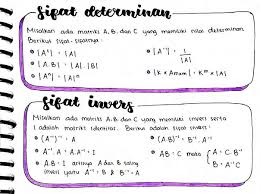 Sifat determinan
Misalkan ada matriks A, B, dan C yang memiliki nilai determinan.
Berikut sifat-sifatnya:
• |Aᵗ| = |A|
• |A⁻¹| = 1/|A|
• |A·B| = |A|·|B|
• |Aⁿ| = |A|ⁿ
• |K × Amxm| = Kᵐ × |A|
Sifat invers
Misalkan ada matriks A, B dan C yang memiliki invers serta
I adalah matriks identitas. Berikut adalah sifat invers:
• (A⁻¹)⁻¹ = A
• (A·B)⁻¹ = B⁻¹·A⁻¹
• A⁻¹·A = A·A⁻¹ = I
• A·B = I artinya A dan B saling
invers yaitu A⁻¹ = B & B⁻¹ = A
• AB = C maka { A = C·B⁻¹
B = A⁻¹·C